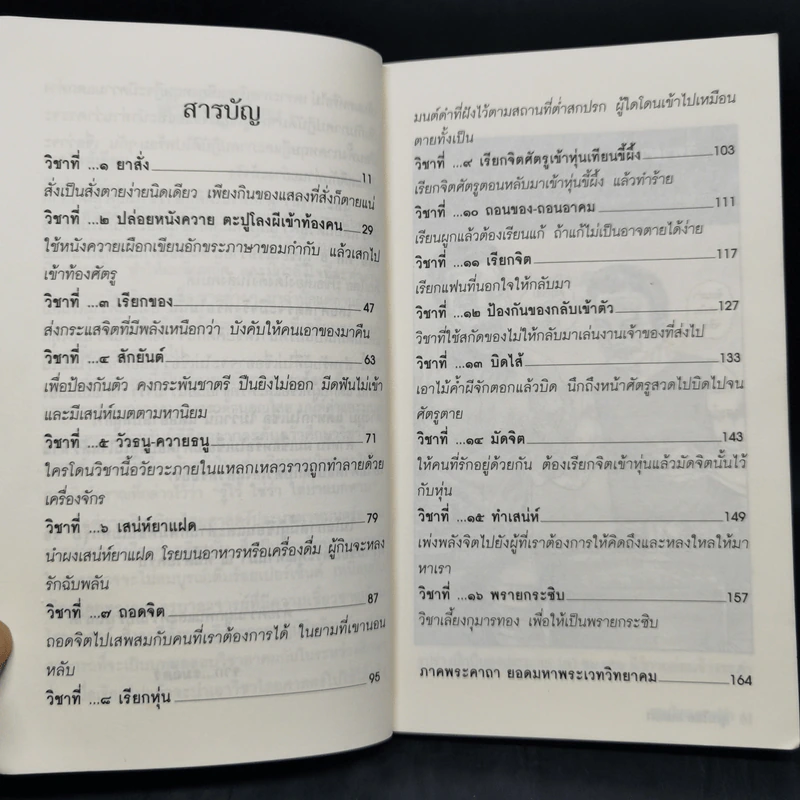 สารบัญ
วิชาที่ ...๑ ยาสั่ง 11
สั่งเป็นสั่งตายง่ายนิดเดียว เพียงกินของแสลงที่สั่งก็ตายแน่
วิชาที่ ...๒ ปล่อยหนังควาย ตะปูโลงผีเข้าท้องคน 29
ใช้หนังควายเผือกเขียนอักขระภาษาขอมกำกับ แล้วเสกไป
เข้าท้องศัตรู
วิชาที่ ...๓ เรียกของ 47
ส่งกระแสจิตที่มีพลังเหนือกว่า บังคับให้คนเอาของมาคืน
วิชาที่ ...๔ สักยันต์ 63
เพื่อป้องกันตัว คงกระพันชาตรี ปืนยิงไม่ออก มีดฟันไม่เข้า
และมีเสน่ห์เมตตามหานิยม
วิชาที่ ...๕ วัวธนู-ควายธนู 71
ใครโดนวิชานี้อวัยวะภายในแหลกเหลวราวถูกทำลายด้วย
เครื่องจักร
วิชาที่ ...๖ เสน่ห์ยาแฝด 79
นำผงเสน่ห์ยาแฝด โรยบนอาหารหรือเครื่องดื่ม ผู้กินจะหลง
รักฉับพลัน
วิชาที่ ...๗ ถอดจิต 87
ถอดจิตไปเสพสมกับคนที่เราต้องการได้ ในยามที่เขานอน
หลับ
วิชาที่ ...๘ เรียกหุ่น 95
มนต์ดำที่ฝังไว้ตามสถานที่ต่ำสกปรก ผู้ใดโดนเข้าไปเหมือน
ตายทั้งเป็น
วิชาที่ ...๙ เรียกจิตศัตรูเข้าหุ่นเทียนขี้ผึ้ง 103
เรียกจิตศัตรูตอนหลับมาเข้าหุ่นขี้ผึ้ง แล้วทำร้าย
วิชาที่ ...๑๐ ถอนของ-ถอนอาคม 111
เรียนผูกแล้วต้องเรียนแก้ ถ้าแก้ไม่เป็นอาจตายได้ง่าย
วิชาที่ ...๑๑ เรียกจิต 117
เรียกแฟนที่นอกใจให้กลับมา
วิชาที่ ...๑๒ ป้องกันของกลับเข้าตัว 127
วิชาที่ใช้สกัดของไม่ให้กลับมาเล่นงานเจ้าของที่ส่งไป
วิชาที่ ...๑๓ บิดไส้ 133
เอาไม้ค้ำผีจักตอกแล้วบิด นึกถึงหน้าศัตรูสวดไปบิดไปจน
ศัตรูตาย
วิชาที่ ...๑๔ มัดจิต 143
ให้คนที่รักอยู่ด้วยกัน ต้องเรียกจิตเข้าหุ่นแล้วมัดจิตนั้นไว้
กับหุ่น
วิชาที่ ...๑๕ ทำเสน่ห์ 149
เพ่งพลังจิตไปยังผู้ที่เราต้องการให้คิดถึงและหลงใหลให้มา
หาเรา
วิชาที่ ...๑๖ พรายกระซิบ 157
วิชาเลี้ยงกุมารทอง เพื่อให้เป็นพรายกระซิบ
ภาคพระคาถา ยอดมหาพระเวทวิทยาคม 164